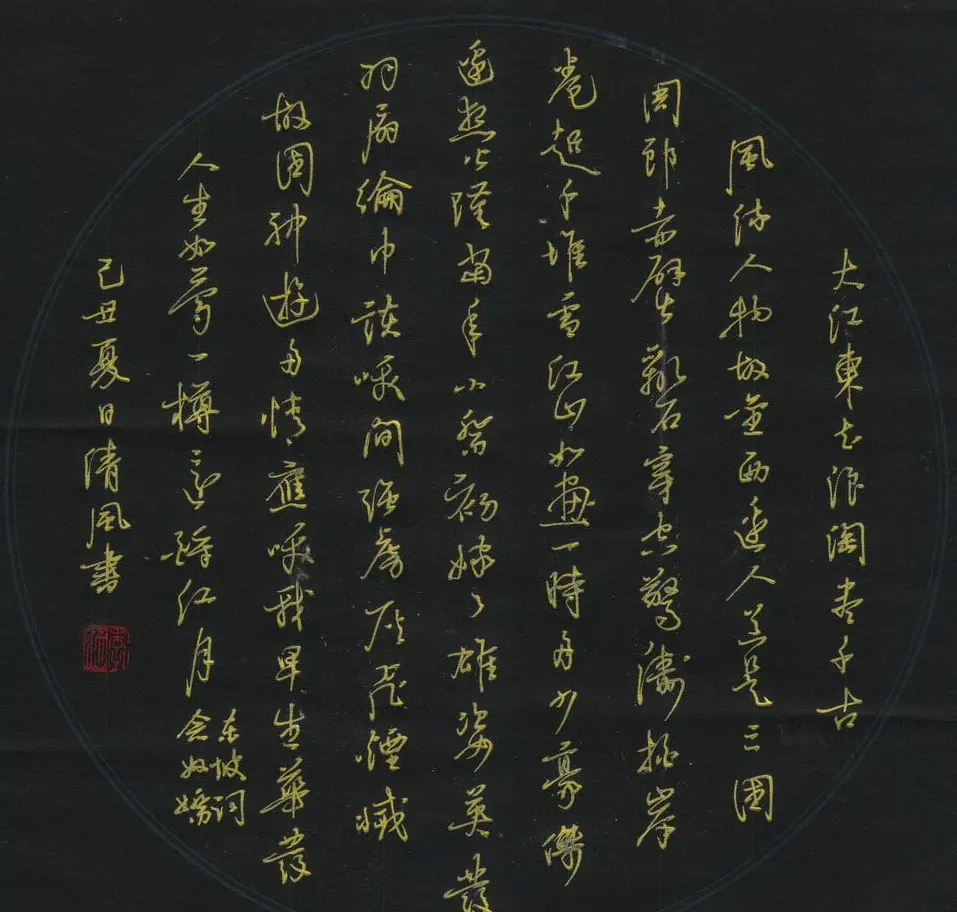 大江東去浪淘盡千古
風流人物故壘西邊人道是三國
周郎赤壁亂石穿空驚濤拍岸
卷起千堆雪江山如畫一時多少豪傑
遙想公瑾當年小喬初嫁了雄姿英發
羽扇綸巾談咲間強虜灰飛煙滅
故國神遊多情應咲我早生華發
人生如夢一樽還酹江月
东坡词
念奴嬌
己丑夏日清風書